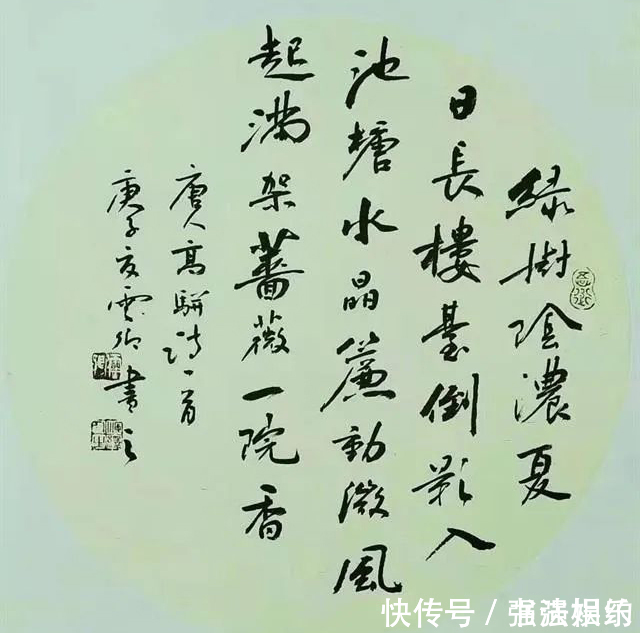 綠樹陰濃夏
日長樓臺倒影入
池塘水晶簾動微風
起滿架薔薇一院香
唐人高駢詩一首
庚子夏雲卿書之
快传号 /